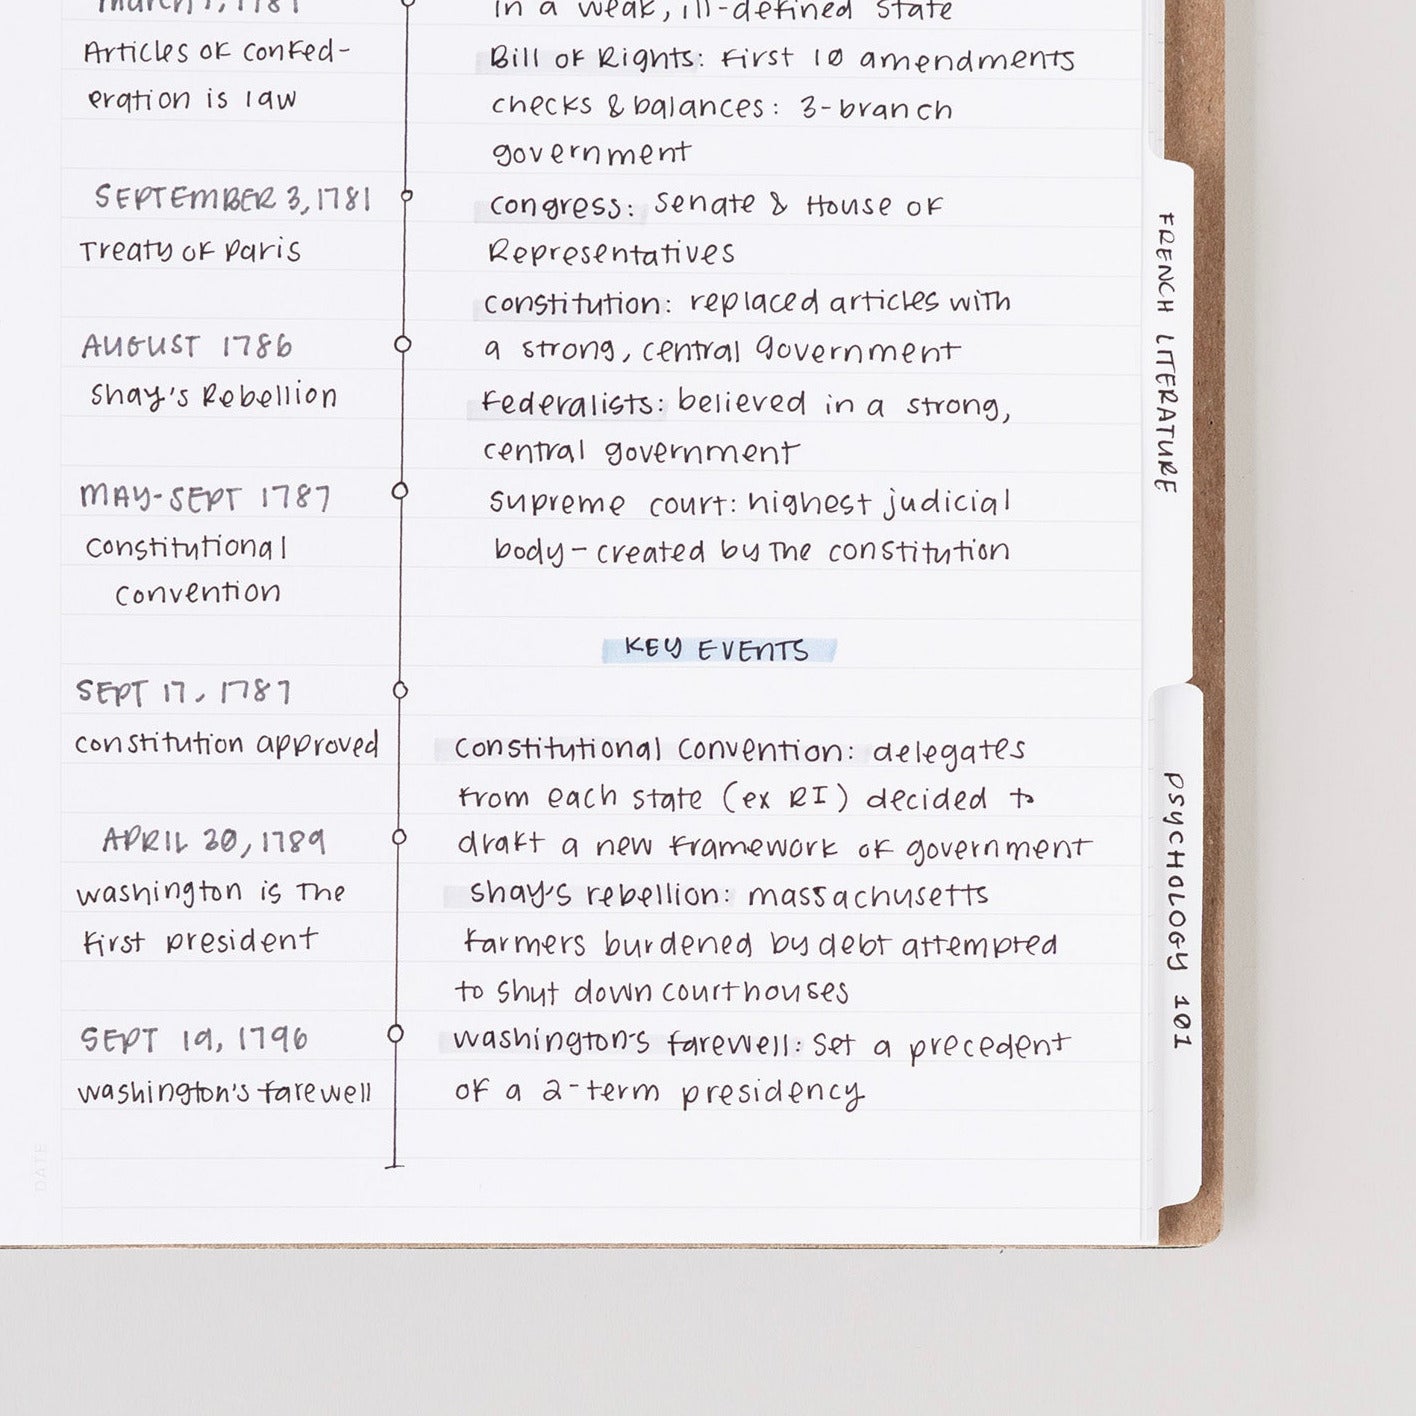 March 1, 1781
Articles of confed-
eration is law
SEPTEMBER 3, 1781
Treaty of Paris
AUGUST 1786
Shay's Rebellion
MAY-SEPT 1787
Constitutional
convention
SEPT 17, 1787
constitution approved
APRIL 30, 1789
washington is the
first president
SEPT 19, 1796
washington's farewell
in a weak, ill-defined state
Bill of Rights: First 10 amendments
checks & balances: 3-branch
government
congress: Senate & House of
Representatives
constitution: replaced articles with
a strong, central government
Federalists: believed in a strong,
central government
supreme court: highest judicial
body - created by the constitution
KEY EVENTS
Constitutional Convention: delegates
from each state (ex RI) decided to
draft a new framework of government
shay's rebellion: massachusetts
farmers burdened by debt attempted
to shut down courthouses
washington's farewell: set a precedent
of a 2-term presidency
FRENCH LITERATURE
PSYCHOLOGY 101
DATE